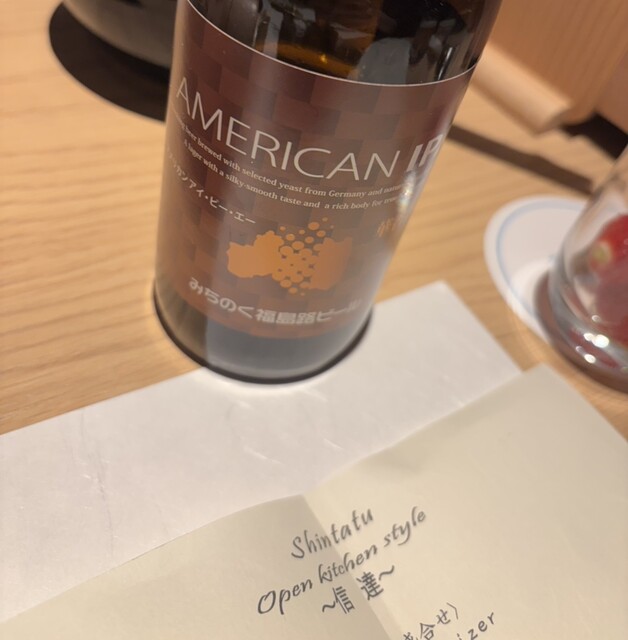 AMERICAN IP
beer brewed with selected yeast from Germany and
A lager with a silky-smooth taste and a rich body for
カンアイ・ピー・エー
みちのく福島路ビール
Shintatu
Open kitchen style
~信達~
合せ)
izer